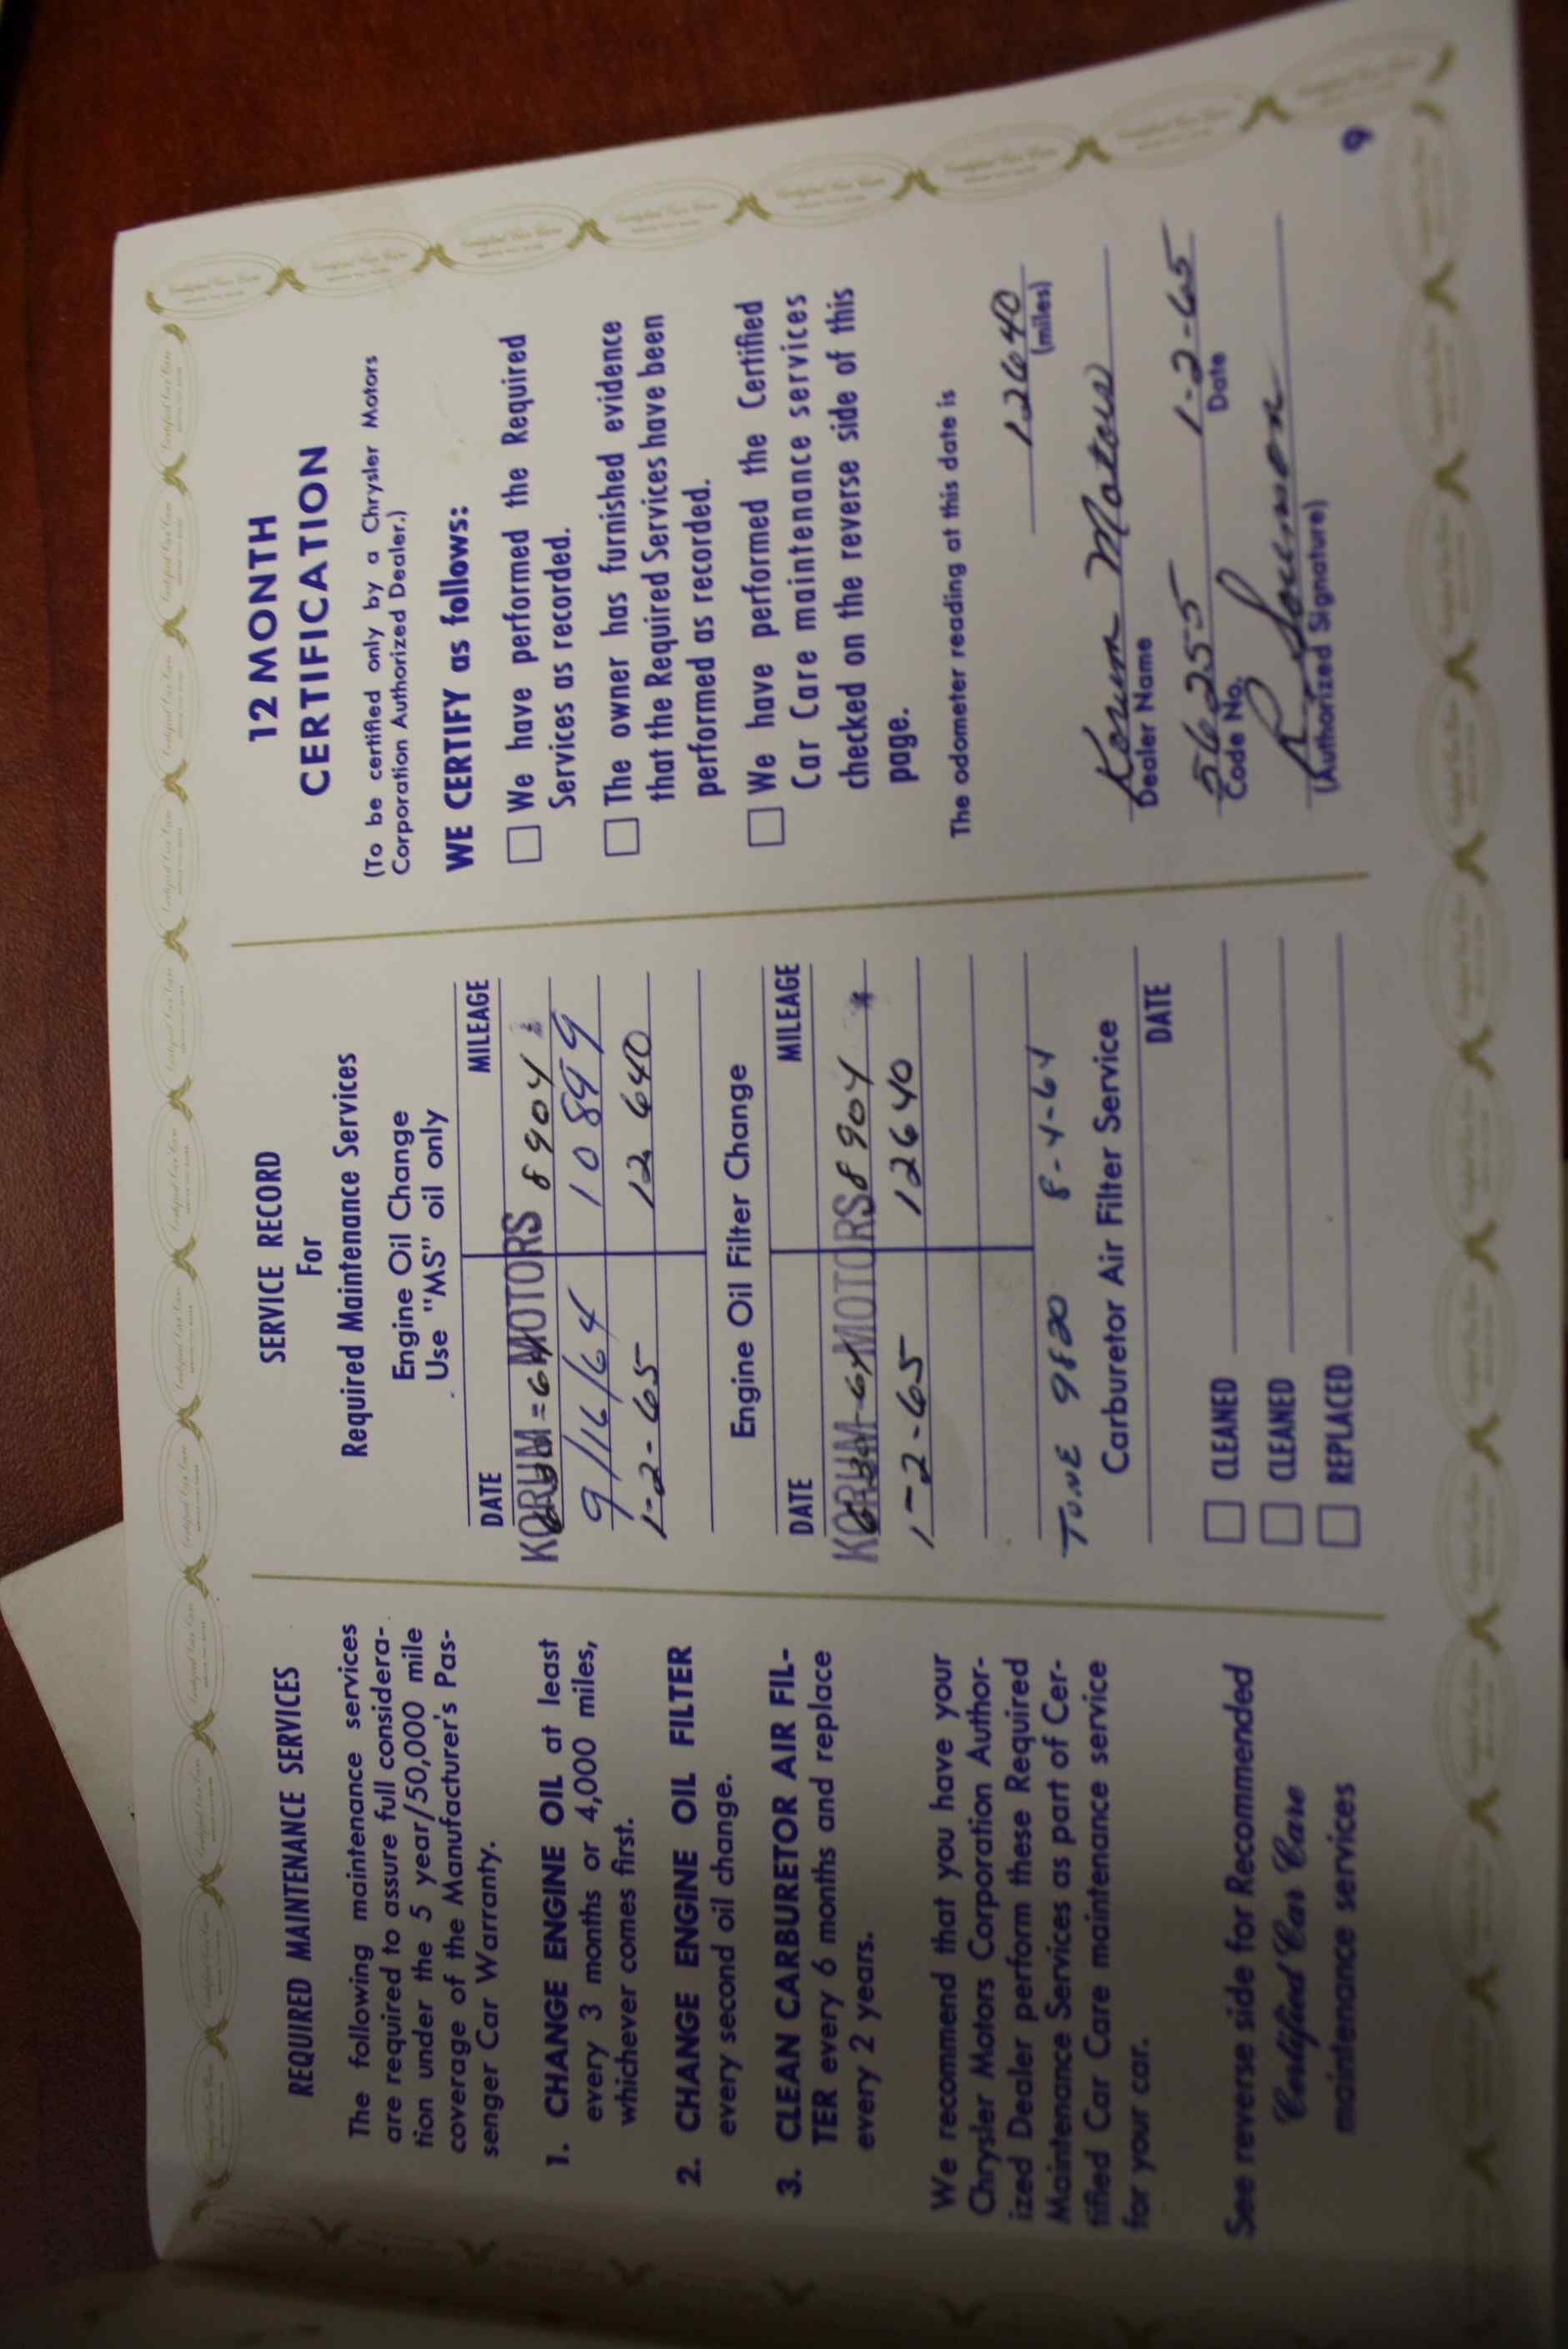 REQUIRED MAINTENANCE SERVICES
The following maintenance services
are required to assure full considera-
tion under the 5 year/50,000 mile
coverage of the Manufacturer's Pas-
senger Car Warranty.
1. CHANGE ENGINE OIL at least
every 3 months or 4,000 miles,
whichever comes first.
2. CHANGE ENGINE OIL FILTER
every second oil change.
3. CLEAN CARBURETOR AIR FIL-
TER every 6 months and replace
every 2 years.
We recommend that you have your
Chrysler Motors Corporation Author-
ized Dealer perform these Required
Maintenance Services as part of Cer-
tified Car Care maintenance service
for your car.
See reverse side for Recommended
Certified Car Care
maintenance services
SERVICE RECORD
For
Required Maintenance Services
Engine Oil Change
Use "MS" oil only
DATE MILEAGE
KORUM MOTORS 8904
9/16/64 10899
1-2-65 12640
Engine Oil Filter Change
DATE MILEAGE
KORUM MOTORS 8904
1-2-65 12640
TUNE 9820 8-4-64
Carburetor Air Filter Service
DATE
CLEANED
CLEANED
REPLACED
12 MONTH
CERTIFICATION
(To be certified only by a Chrysler Motors
Corporation Authorized Dealer.)
WE CERTIFY as follows:
We have performed the Required
Services as recorded.
The owner has furnished evidence
that the Required Services have been
performed as recorded.
We have performed the Certified
Car Care maintenance services
checked on the reverse side of this
page.
The odometer reading at this date is
12640
(miles)
Korum Motors
Dealer Name
56255 1-2-65
Code No. Date
(Authorized Signature)
9